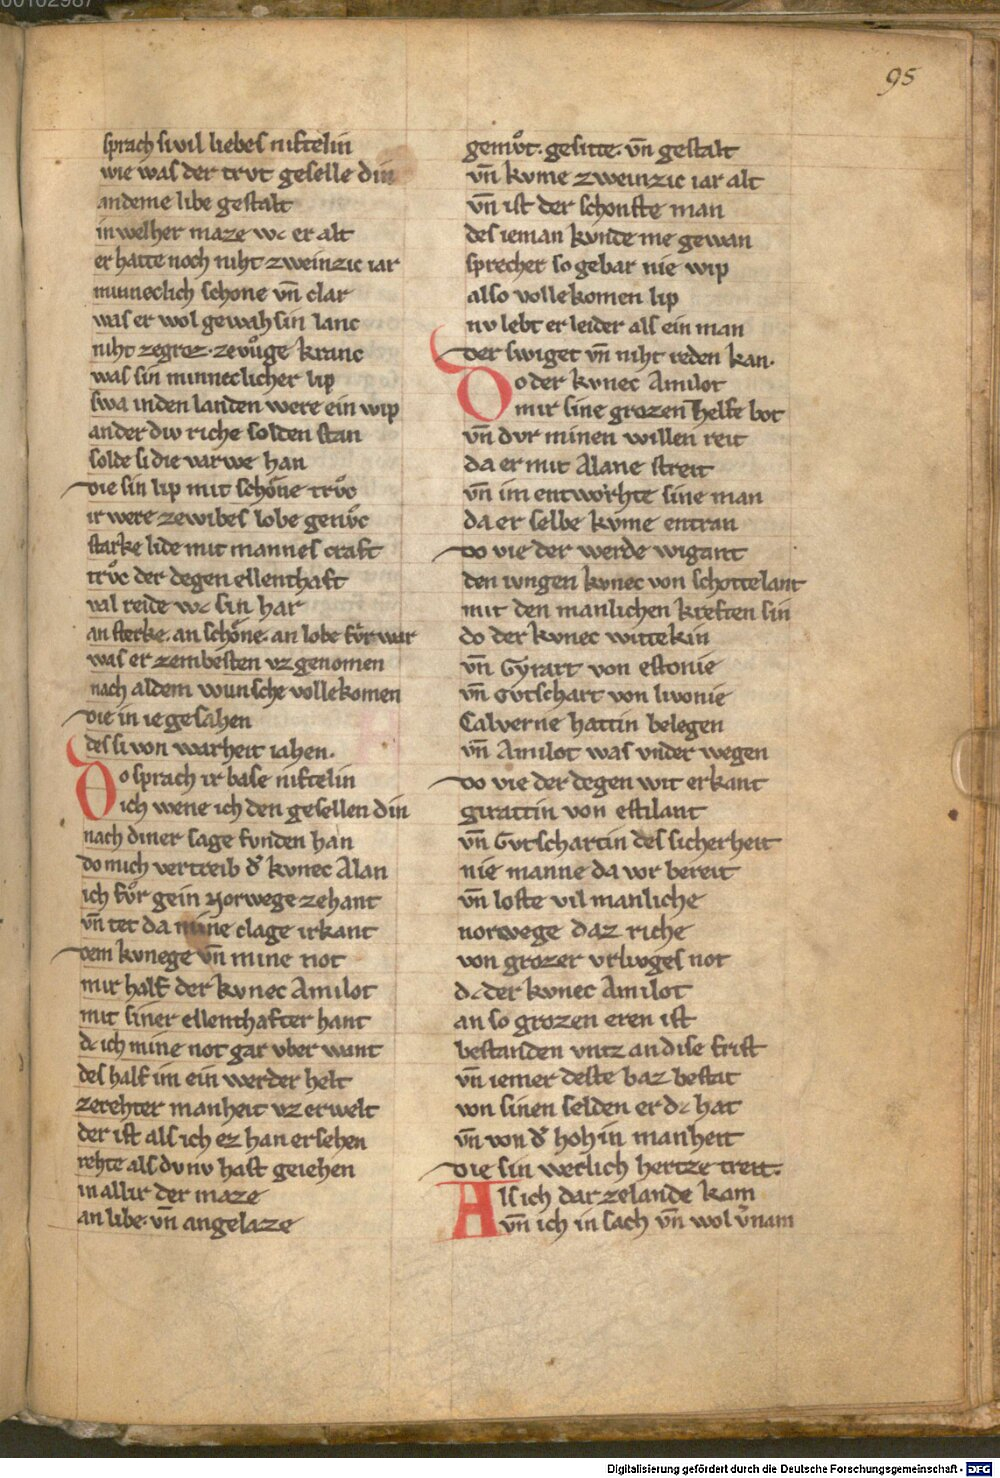 00102987
95
sprach si vil liebes niftelin
wie was der trvt geselle din
an deme libe gestalt
in welher maze wc er alt
er hatte noch niht zweinzic iar
minneclich schone vn̄ clar
was er wol gewahsin lanc
niht zegroz. zevůge kranc
was sin minneclicher lip
swa inden landen were ein wip
ander div riche solden stan
solde si die varwe han
die sin lip mit schone trůc
ir were zewibes lobe genůc
starke lide mit mannes craft
trůc der degen ellenthaft
val reide wc sin har
an sterke. an schone. an lobe fůr war
was er zem besten vz genomen
nach aldem wunsche vollekomen
die in ie gesahen
des si von warheit iahen.
Do sprach ir base niftelin
ich wene ich den gesellen din
nach diner sage funden han
do mich vertreib d' kvnec Alan
ich fůr gein Norwege zehant
vn̄ tet da mine clage irkant
dem kvnege vn̄ mine not
mir half der kvnec Amilot
mit siner ellenthafter hant
dc ich mine not gar vber want
des half im ein werder helt
zerehter manheit vz erwelt
der ist als ich ez han ersehen
rehte als dv nv hast geiehen
in allir der maze
an libe. vn̄ angelaze
gemůt. gesitte. vn̄ gestalt
vn̄ kvme zweinzic iar alt
vn̄ ist der schonste man
des ieman kvnde me gewan
sprecher so gebar nie wip
also vollekomen lip
nv lebt er leider als ein man
der swiget vn̄ niht reden kan.
Do der kvnec Amilot
mir sine grozen helfe bot
vn̄ dvr minen willen reit
da er mit Alane streit
vn̄ im entworhte sine man
da er selbe kvme entran
do vie der werde wigant
den iungen kvnec von schottelant
mit den manlichen kreften sin
do der kvnec wittekin
vn̄ Gyrart von estonie
vn̄ Gvtschart von livonie
Calverne hattin belegen
vn̄ Amilot was vnder wegen
do vie der degen wit erkant
girattin von estilant
vn̄ Gvtschartin des sicherheit
nie manne da vor bereit
vn̄ loste vil manliche
norwege daz riche
von grozer vrlvoges not
dc der kvnec Amilot
an so grozen eren ist
bestanden vntz an dise frist
vn̄ iemer deste baz bestat
von sinen selden er dc hat
vn̄ von d' hohin manheit
die sin werlich hertze treit.
Als ich dar zelande kam
vn̄ ich in sach vn̄ wol v'nam
Digitalisierung gefördert durch die Deutsche Forschungsgemeinschaft - DFG